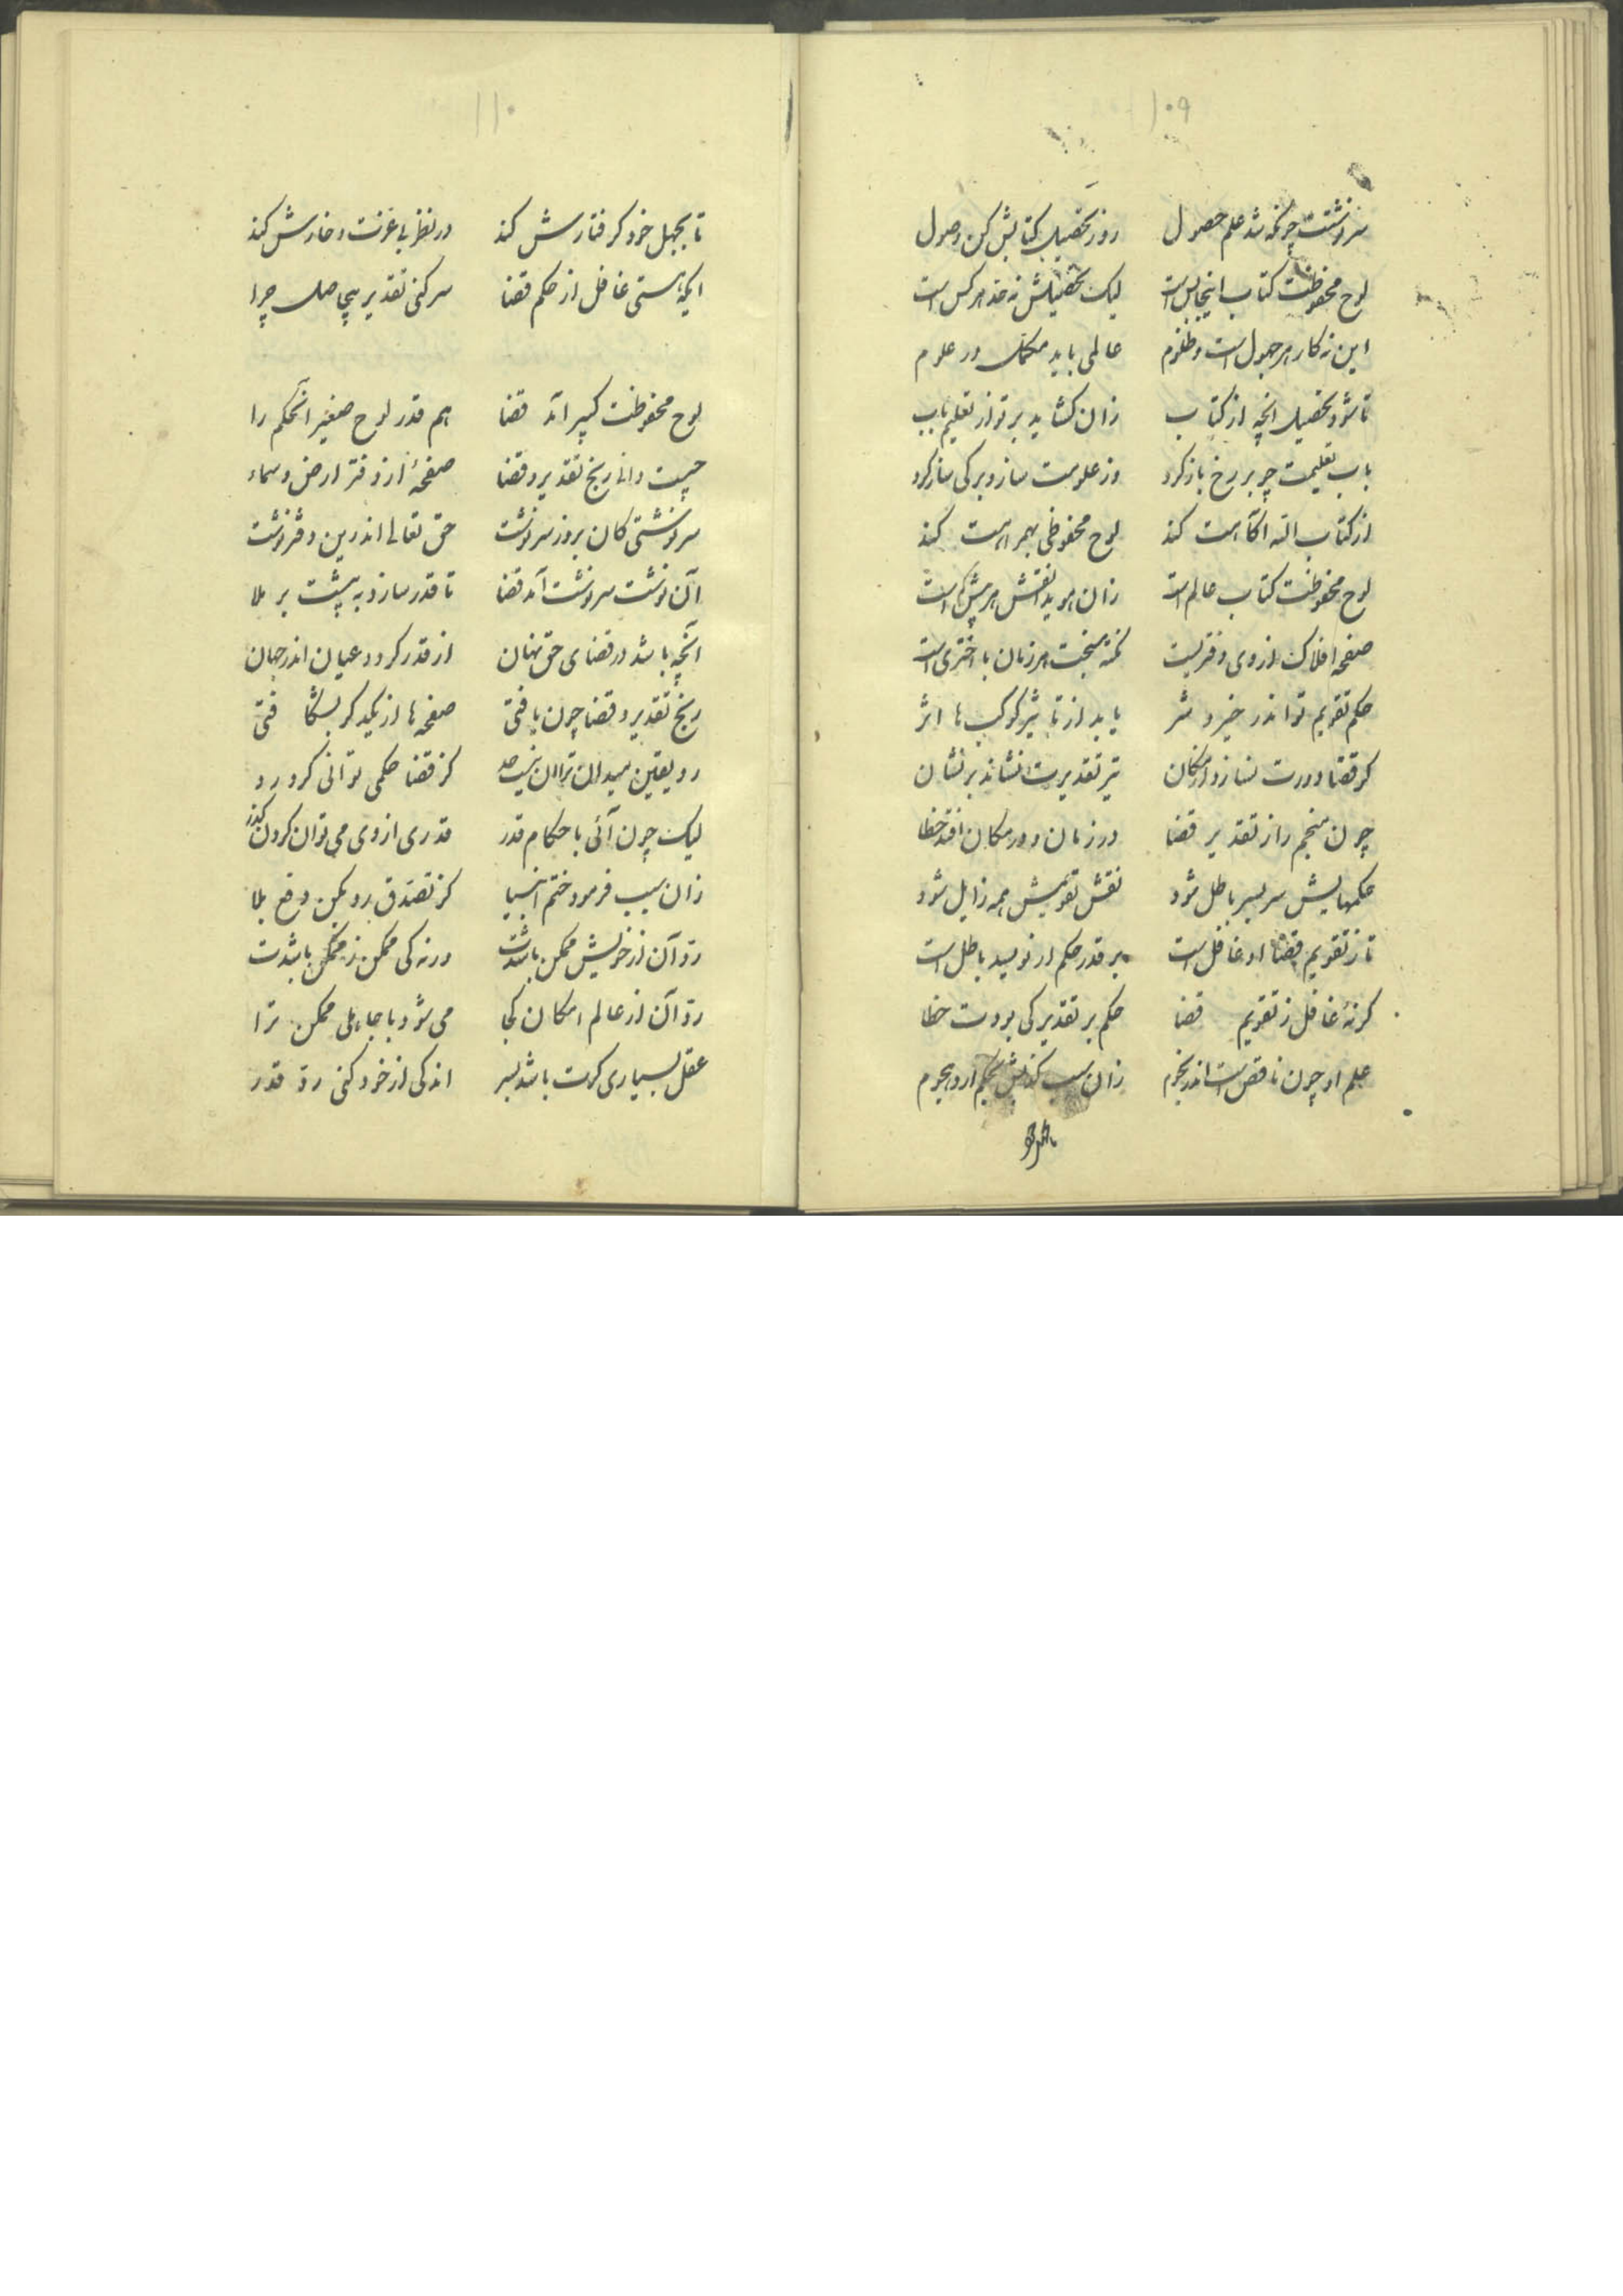 ۱۰۹
سرنوشتت چونکه شد علم حصول رو ز تحصیل کتابش کن وصول
لوح محفوظت کتاب اینجا بس است لیک تحصیلش نه حد هر کس است
این نه کار هر جهول است و ظلوم عالمی باید مکمل در علوم
تا شود تحصیل انچه از کتاب زان کشاید بر تو از تعلیم باب
باب تعلیمت چو بر رخ باز کرد وز علومت ساز و برکی ساز کرد
از کتاب الله اکاهت کند لوح محفوظی بهمراهت کند
لوح محفوظت کتاب عالم است زان هویدا نقش هر بیش و کم است
صفحه افلاک از وی دفتریست هر زمان با اختری است
حکم تقویم تو اندر خیر و شر یابد از تاثیر کوکب ها اثر
کر قضا دورت نسازد از مکان تیر تقدیرت نشاند بر نشان
چون منجم را ز تقدیر قضا در زمان و در مکان افتد خطا
حکمهایش سر بسر باطل شود نقش تقویمش همه زایل شود
تا ز تقویم قضا او غافل است بر قدر حکم ار نویسد باطل است
کر نهٔ غافل ز تقویم قضا حکم بر تقدیر کی بودت خطا
علم او چون ناقص است اندر نجوم زان سبب آرد هجوم
۱۱۰
تا بجهل خود کرفتارش کند در نظر بی عزت و خارش کند
ایکه هستی غافل از حکم قضا سر کنی تقدیر بیحاصل چرا
لوح محفوظت کبیر آمد قضا هم قدر لوح صغیر آنحکم را
چیست دانی زیج تقدیر و قضا صفحهٔ از دفتر ارض و سماء
سرنوشتی کان بروز سرنوشت حق تعالی اندرین دفتر نوشت
آن نوشت سرنوشت آمد قضا تا قدر سازد به پیشت بر ملا
آنچه باشد در قضای حق نهان از قدر کردد عیان اندر جهان
زیج تقدیر و قضا چون یافتی صفحه ها از یکدکر بشکافتی
رو یقین میدان ترا آن نیست حد کز قضا حکمی توانی کرد رد
لیک چون آئی باحکام قدر قدری از وی می توان کردن کذر
زان سبب فرمود ختم انبیا کز تصدق رو بکن دفع بلا
رد آن از خویش ممکن باشدت ورنه کی ممکن ز ممکن باشدت
رد آن از عالم امکان کجا می شود با جاهلی ممکن ترا
عقل بسیاری کرت باشد بسر اندکی از خود کنی رد قدر